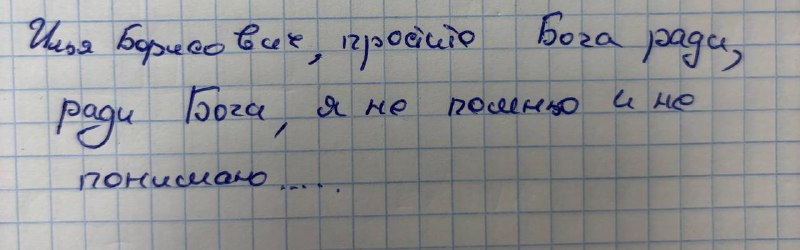 Илья Борисович, простите Бога ради,
ради Бога, я не помню и не
понимаю.....